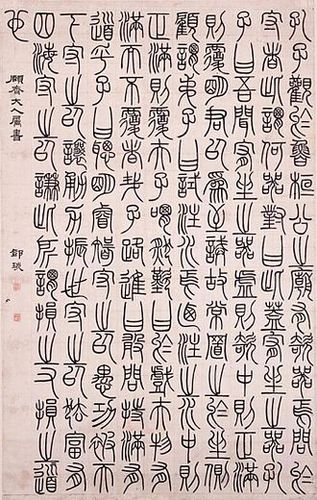 孔子觀於魯桓公之廟有欹器焉
守者此謂何器對曰此蓋宥坐之器
子曰吾聞宥坐之器虛則欹中則正滿
則覆明君以為至誡故常置之於坐側
顧謂弟子曰試注水焉乃注之水中則
正滿則覆夫子喟然歎曰於戲夫物有
滿而不覆者哉子路進曰敢問持滿有
道乎子曰聰明睿智守之以愚功被天
下守之以讓勇力振世守之以怯富有
四海守之以謙此所謂損之又損之道
也
顧齋大人屬書
鄧琰